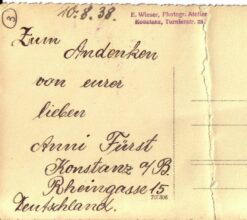 3
10.8.38.
E. Wieser, Photogr. Atelier
Konstanz, Turnierstr.
Zum
Andenken
von eurer
lieben
Anni Fürst
Konstanz a/B
Rheingasse 15
Deutschland.